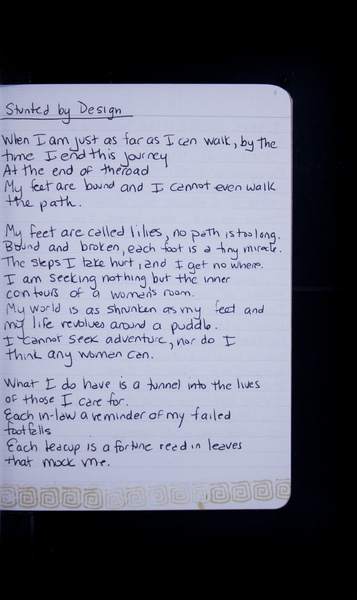 Stunted by Design
When I am just as far as I can walk, by the
time I end this journey
At the end of the road
My feet are bound and I cannot even walk
the path.
My feet are called lilies, no path is too long.
Bound and broken, each foot is a tiny miracle.
The steps I take hurt, and I get no where.
I am seeking nothing but the inner
contours of a woman's room.
My world is as shrunken as my feet and
my life revolves around a puddle.
I cannot seek adventure, nor do I
think any woman can.
What I do have is a tunnel into the lives
of those I care for.
Each in-law a reminder of my failed
footfalls
Each teacup is a fortune reed in leaves
that mock me.